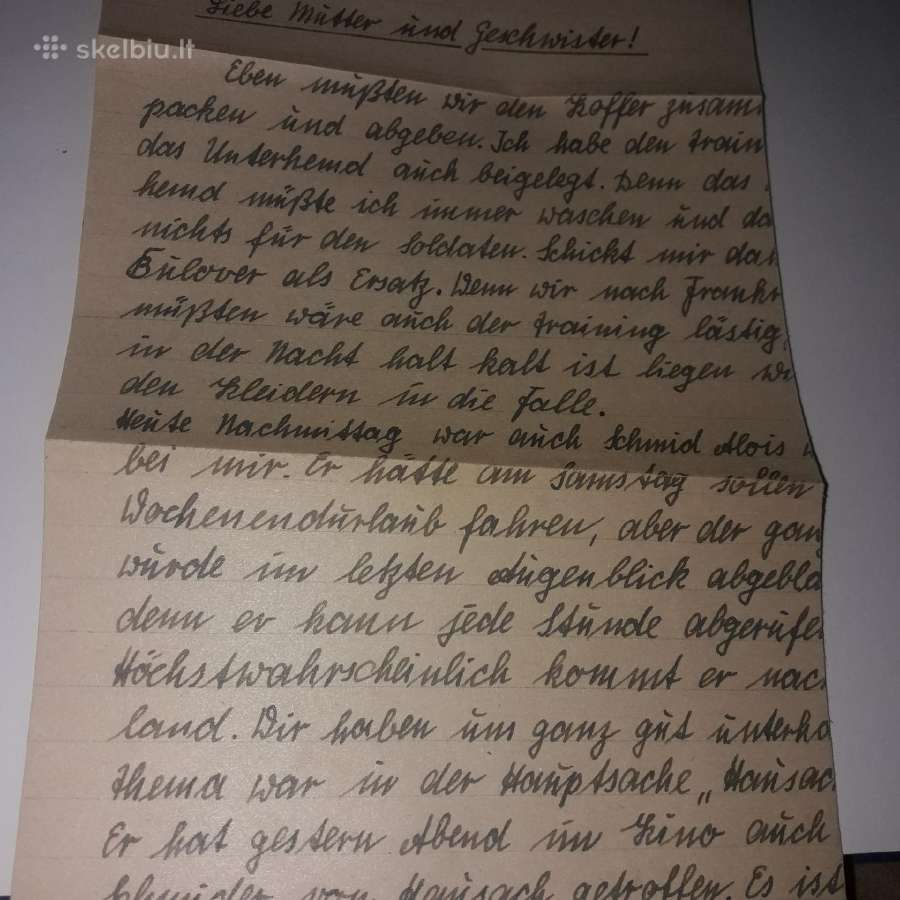 skelbiu.lt
Liebe Mutter und Geschwister!
Eben müßten wir den Koffer zusam
packen und abgeben. Ich habe den Train
das Unterhemd auch beigelegt. Denn das
hemd müßte ich immer waschen und da
nichts für den Soldaten. Schickt mir da
Bulover als Ersatz. Wenn wir nach Frankr
müßten wäre auch der Training lästig,
in der Nacht halt kalt ist liegen wi
den Kleidern in die Falle.
Heute Nachmittag war auch Schmid Alois
bei mir. Er hätte am Samstag sollen
Wochenendurlaub fahren, aber der gan
wurde im letzten Augenblick abgebla
denn er kann jede Stunde abgerufe
Höchstwahrscheinlich kommt er nac
land. Wir haben uns ganz gut unterha
Thema war in der Hauptsache „Hausac
Er hat gestern Abend im Kino auch
Schneider von Hausach getroffen. Es ist